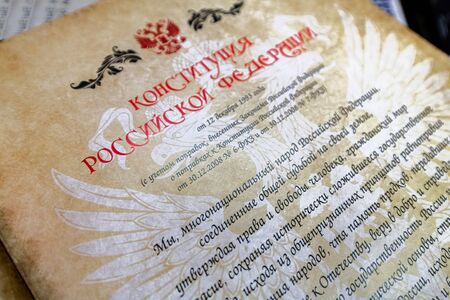 КОНСТИТУЦИЯ
РОССИЙСКОЙ ФЕДЕРАЦИИ
от 12 декабря 1993 года
(с учетом поправок, внесенных Законами Российской Федерации
о поправках к Конституции Российской Федерации
от 30.12.2008 № 6-ФКЗ и от 30.12.2008 № 7-ФКЗ)
Мы, многонациональный народ Российской Федерации,
соединенные общей судьбой на своей земле,
утверждая права и свободы человека, гражданский мир
согласие, сохраняя исторически сложившееся государственное
исходя из общепризнанных принципов равноправия
народов, чтя память предков, передавших
к Отечеству, веру в добро и справ
государственность России
основы, стр